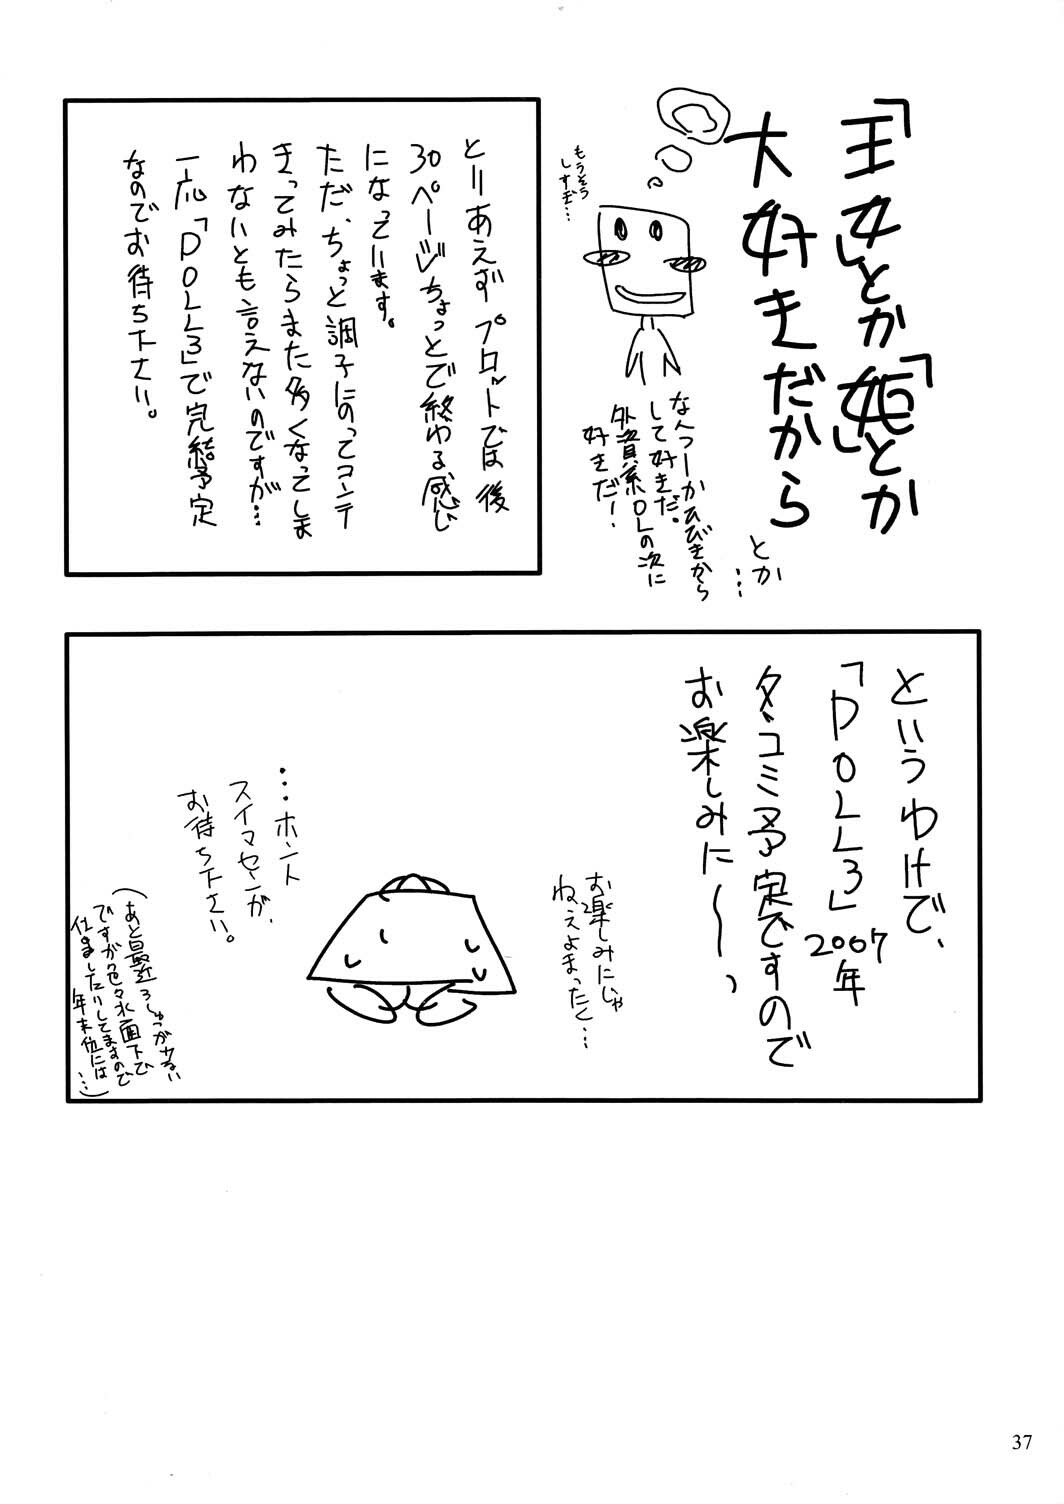 「王女」とか「姫」とか
大好きだから
とか
…
もうそう
しすぎ…
なんつーかひびきから
して好きだ。
外資系OLの次に
好きだー!
とりあえずプロットでは後
30ページちょっとで終わる感じ
になっています。
ただ、ちょっと調子にのってコンテ
きってみたらまた多くなってしま
わないとも言えないのですが…
一応「DOLL3」で完結予定
なのでお待ち下さい。
というわけで、
「DOLL3」2007年
夏コミ予定ですので
お楽しみに〜っ
お楽しみにじゃ
ねえよまったく…
…ホント
スイマセンが、
お待ち下さい。
(あと最近ろしゅつが少ない
ですが色々水面下で
仕こましたりしてますので
年末位には
…)
37